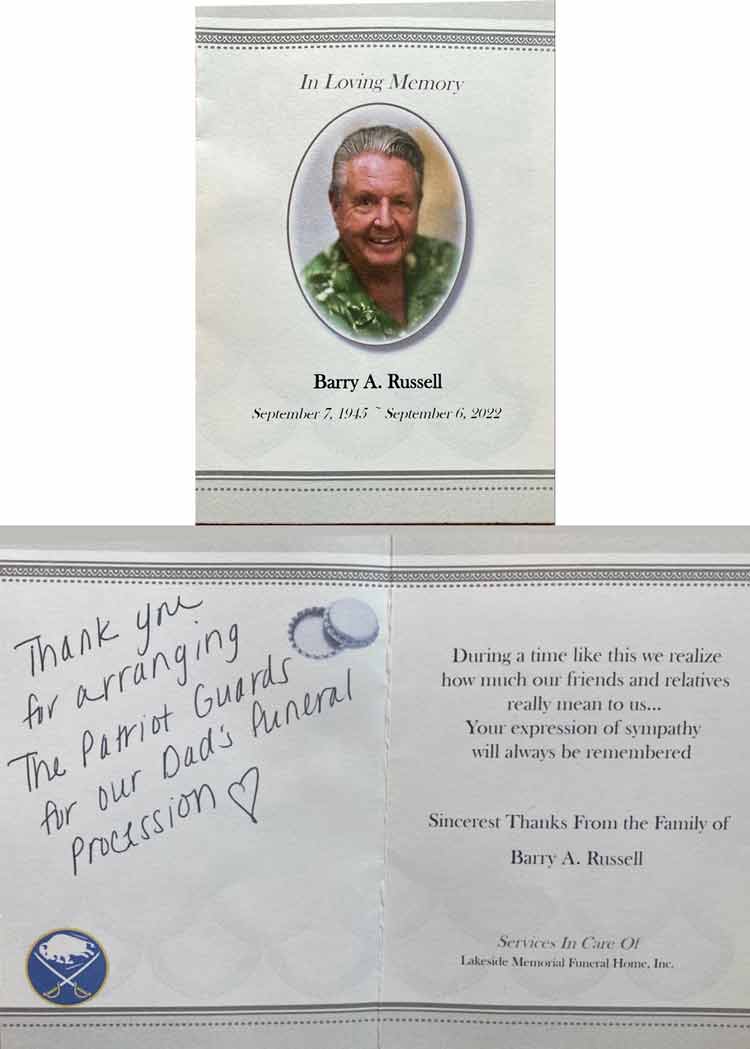 In Loving Memory
Barry A. Russell
September 7, 1945 ~ September 6, 2022
Thank you
for arranging
The Patriot Guards
for our Dad's Funeral
Procession ♡
During a time like this we realize
how much our friends and relatives
really mean to us...
Your expression of sympathy
will always be remembered
Sincerest Thanks From the Family of
Barry A. Russell
Services In Care Of
Lakeside Memorial Funeral Home, Inc.